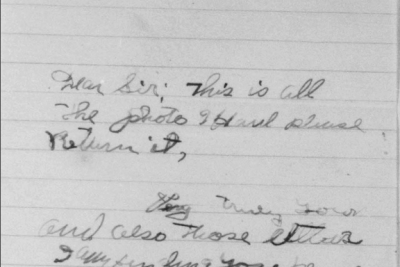 Dear Sir; This is all
the photo I Have please
Return it,
Very Truly Yours
and also those letters
I am sending you